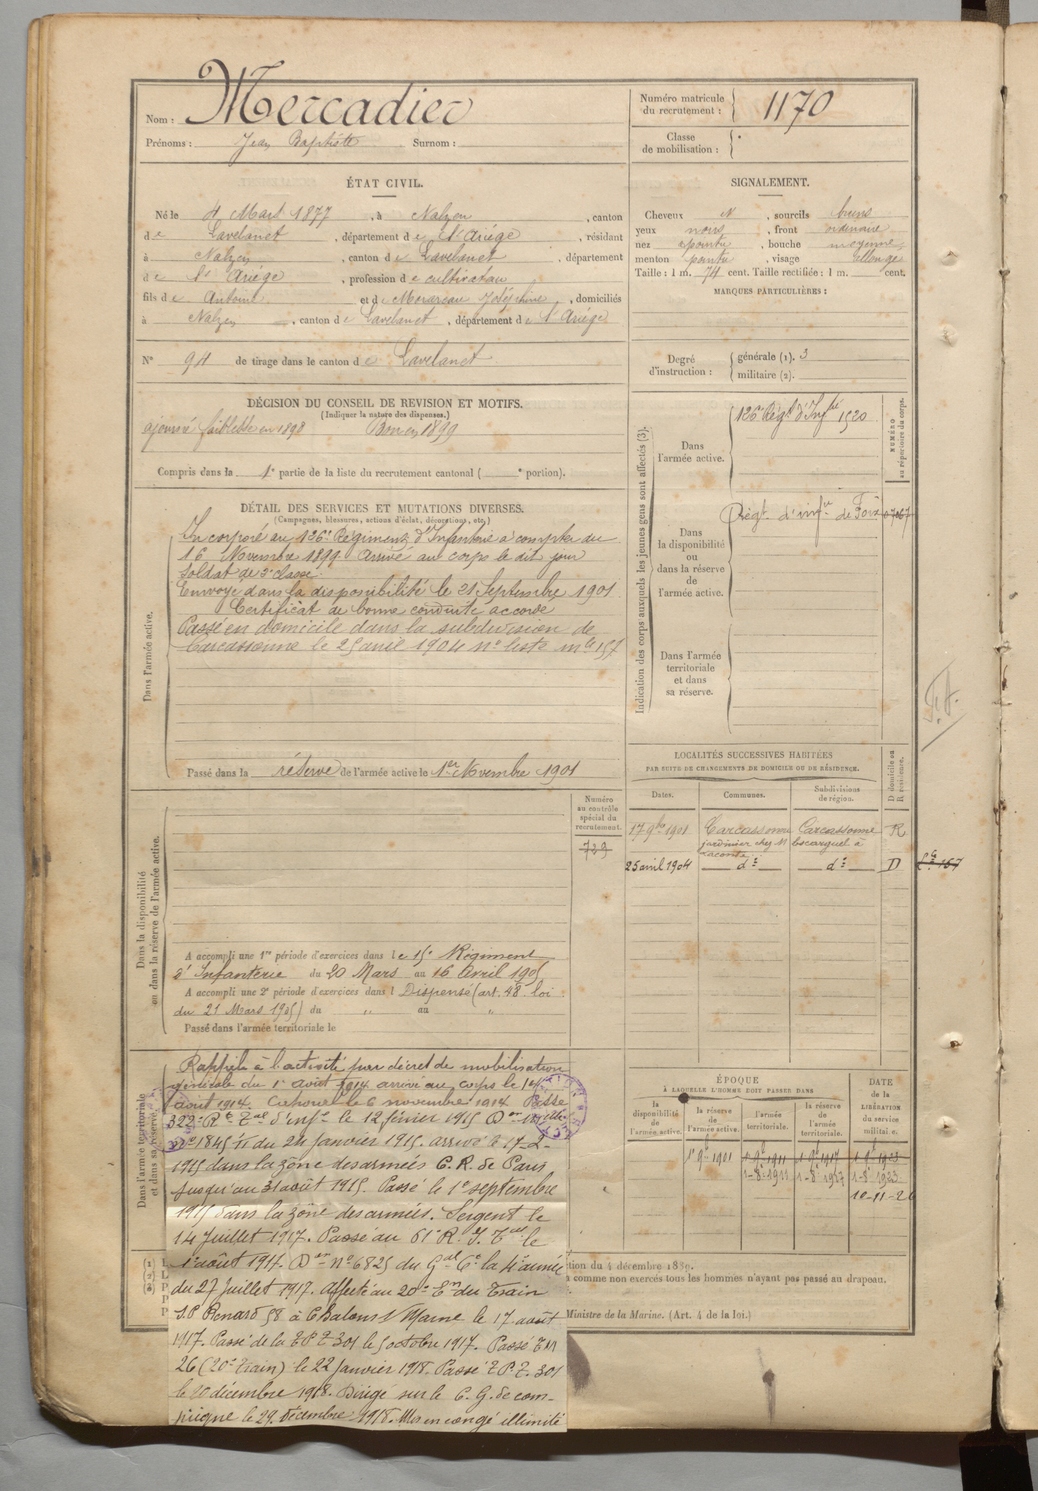 Nom : Mercadier
Prénoms : Jean Baptiste Surnom :
Numéro matricule du recrutement : 1170
Classe de mobilisation :
ÉTAT CIVIL.
Né le 4 Mars 1877, à Nalzen, canton
de Lavelanet, département de l'Ariége, résidant
à Nalzen, canton de Lavelanet, département
de l'Ariége, profession de cultivateur
fils de Antoine et de Joséphine, domiciliés
à Nalzen, canton de Lavelanet, département de l'Ariége
N° 94 de tirage dans le canton de Lavelanet
SIGNALEMENT.
Cheveux N, sourcils bruns
yeux noirs, front ordinaire
nez épointu, bouche moyenne
menton pointu, visage allongé
Taille : 1 m. 74 cent. Taille rectifiée : 1 m. cent.
MARQUES PARTICULIÈRES :
Degré d'instruction : générale (1). 3
militaire (2).
DÉCISION DU CONSEIL DE REVISION ET MOTIFS.
(Indiquer la nature des dispenses.)
ajourné faiblesse en 1898 Bon en 1899
Compris dans la 1e partie de la liste du recrutement cantonal ( e portion).
DÉTAIL DES SERVICES ET MUTATIONS DIVERSES.
(Campagnes, blessures, actions d'éclat, décorations, etc.)
Dans l'armée active.
Incorporé au 126e Régiment d'Infanterie à compter du
16 Novembre 1899 Arrivé au corps le dit jour
Soldat de 2e classe.
Envoyé dans la disponibilité le 21 Septembre 1901
Certificat de bonne conduite accordé
Passé en domicile dans la subdivision de
Carcassonne le 25 avril 1904 n° liste mle 157
Passé dans la réserve de l'armée active le 1er Novembre 1901
Indication des corps auxquels les jeunes gens sont affectés (3).
NUMÉRO au répertoire du corps.
Dans l'armée active. 126e Régt d'Infie 1520
Dans la disponibilité ou dans la réserve de l'armée active. Régt d'infie de Foix 0706
Dans l'armée territoriale et dans sa réserve.
F.A.
LOCALITÉS SUCCESSIVES HABITÉES
PAR SUITE DE CHANGEMENTS DE DOMICILE OU DE RÉSIDENCE.
Dates. Communes. Subdivisions de région. D domicile ou R résidence.
17 9bre 1901 Carcassonne Carcassonne R
jardinier chez M Escarguel à
25 avril 1904 do do D
Dans la disponibilité ou dans la réserve de l'armée active.
Numéro au contrôle spécial du recrutement.
729
A accompli une 1re période d'exercices dans le 15e Régiment
d'Infanterie du 20 Mars au 16 Avril 1905
A accompli une 2e période d'exercices dans l Dispensé (art. 48. loi
du 21 Mars 1905) du " au "
Passé dans l'armée territoriale le
Dans l'armée territoriale et dans sa réserve.
Rappelé à l'activité par décret de mobilisation
générale du 1er août 1914 arrivé au corps le 14
août 1914. Caporal le 6 novembre 1914 Passé
322e Rt Tal d'Infie le 12 février 1915 Don mlle
n° 1845 11 du 24 Janvier 1915. arrivé le 17-2-
1915 dans la zône des armées C. R. de Paris
jusqu'au 31 août 1915. Passé le 1er septembre
1915 dans la zône des armées. Sergent le
14 juillet 1917. Passé au 61e R. I. Tal le
1er août 1917. Don n° 6825 du Gal Ct la 4e armée
du 27 juillet 1917. Affecté au 20e Em du Train
S.P Renard 58 à Chalons s/ Marne le 17 août
1917. Passé de la T P T 301 le 5 octobre 1917. Passé T M
26 (20e Train) le 22 Janvier 1918. Passé T. P. T. 301
le 20 décembre 1918. Dirigé sur le C. G. de com-
piègne le 29 décembre 1918. Mis en congé illimité
ÉPOQUE
À LAQUELLE L'HOMME DOIT PASSER DANS
la disponibilité de l'armée active. la réserve de l'armée active. l'armée territoriale. la réserve de l'armée territoriale. DATE de la LIBÉRATION du service militaire.
1er 9bre 1901 1 9bre 1911 1 9bre 1917 1 9bre 1923
1-8e 1911 1-8e 1917 1-8e 1923
10-11-26
tion du 4 décembre 1889.
a comme non exercés tous les hommes n'ayant pas passé au drapeau.
Ministre de la Marine. (Art. 4 de la loi.)